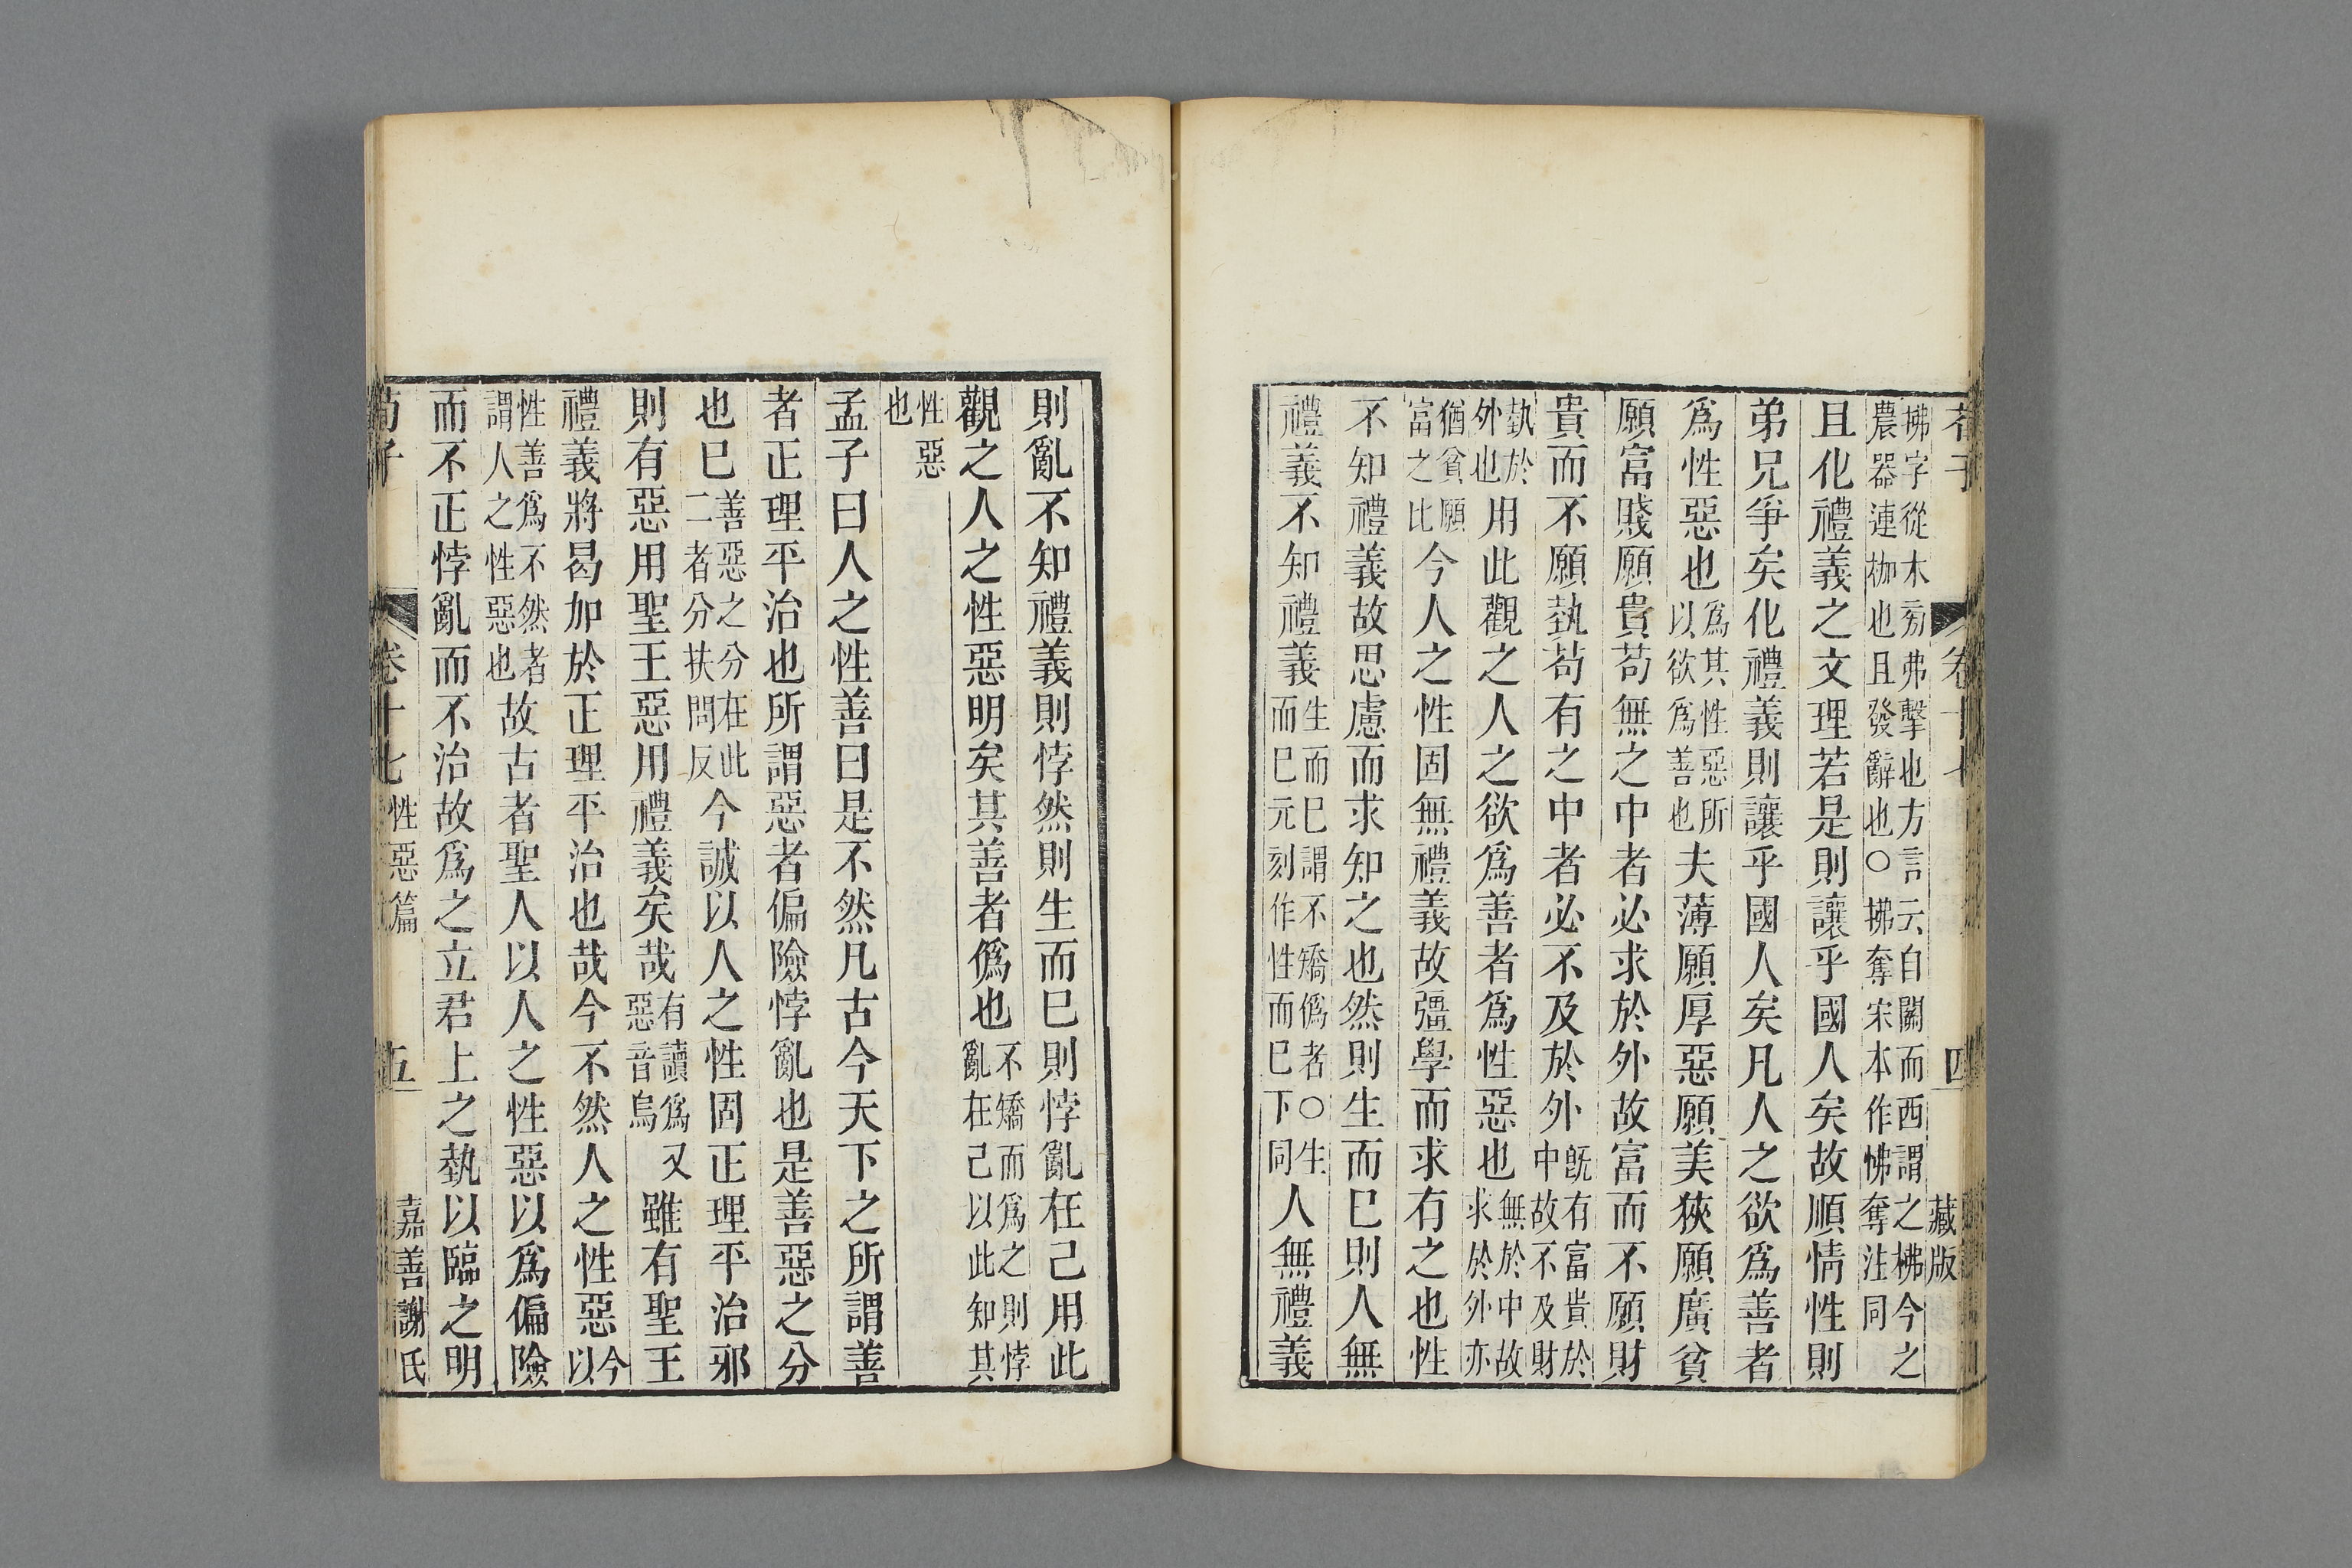 荀子 卷十七 四 藏版
拂字從木㫄弗擊也方言云自關而西謂之柫今之
農器連枷也且發辭也○拂奪宋本作怫奪注同
且化禮義之文理若是則讓乎國人矣故順情性則
弟兄爭矣化禮義則讓乎國人矣凡人之欲爲善者
爲性惡也爲其性惡所以欲爲善也夫薄願厚惡願美狹願廣貧
願富賤願貴苟無之中者必求於外故富而不願財
貴而不願埶苟有之中者必不及於外既有富貴於中故不及財
埶於外也用此觀之人之欲爲善者爲性惡也無於中故求於外亦
猶貧願富之比今人之性固無禮義故彊學而求有之也性
不知禮義故思慮而求知之也然則生而已則人無
禮義不知禮義生而已謂不矯僞者○生而已元刻作性而已下同人無禮義
則亂不知禮義則悖然則生而已則悖亂在己用此
觀之人之性惡明矣其善者僞也不矯而爲之則悖亂在己以此知其
性惡也
孟子曰人之性善曰是不然凡古今天下之所謂善
者正理平治也所謂惡者偏險悖亂也是善惡之分
也已善惡之分在此二者分扶問反今誠以人之性固正理平治邪
則有惡用聖王惡用禮義矣哉有讀爲又惡音烏雖有聖王
禮義將曷加於正理平治也哉今不然人之性惡今以
性善爲不然者謂人之性惡也故古者聖人以人之性惡以爲偏險
而不正悖亂而不治故爲之立君上之埶以臨之明
荀子 卷十七 性惡篇 五 嘉善謝氏